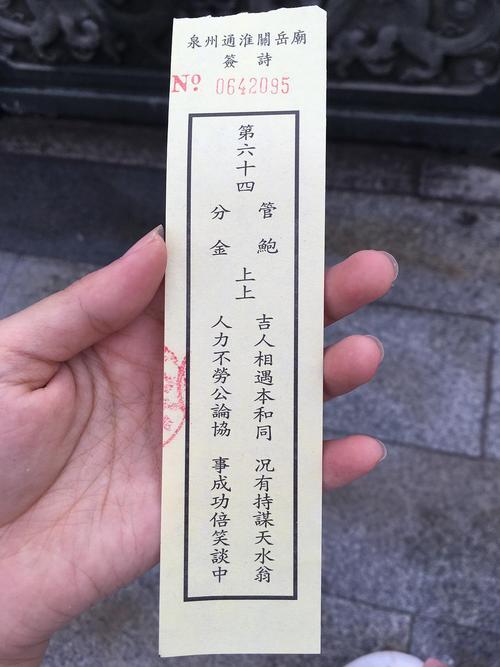 泉州通淮關岳廟
簽詩
No. 0642095
第六十四
管鮑
分金
上上
吉人相遇本和同 况有持謀天水翁
人力不勞公論協 事成功倍笑談中